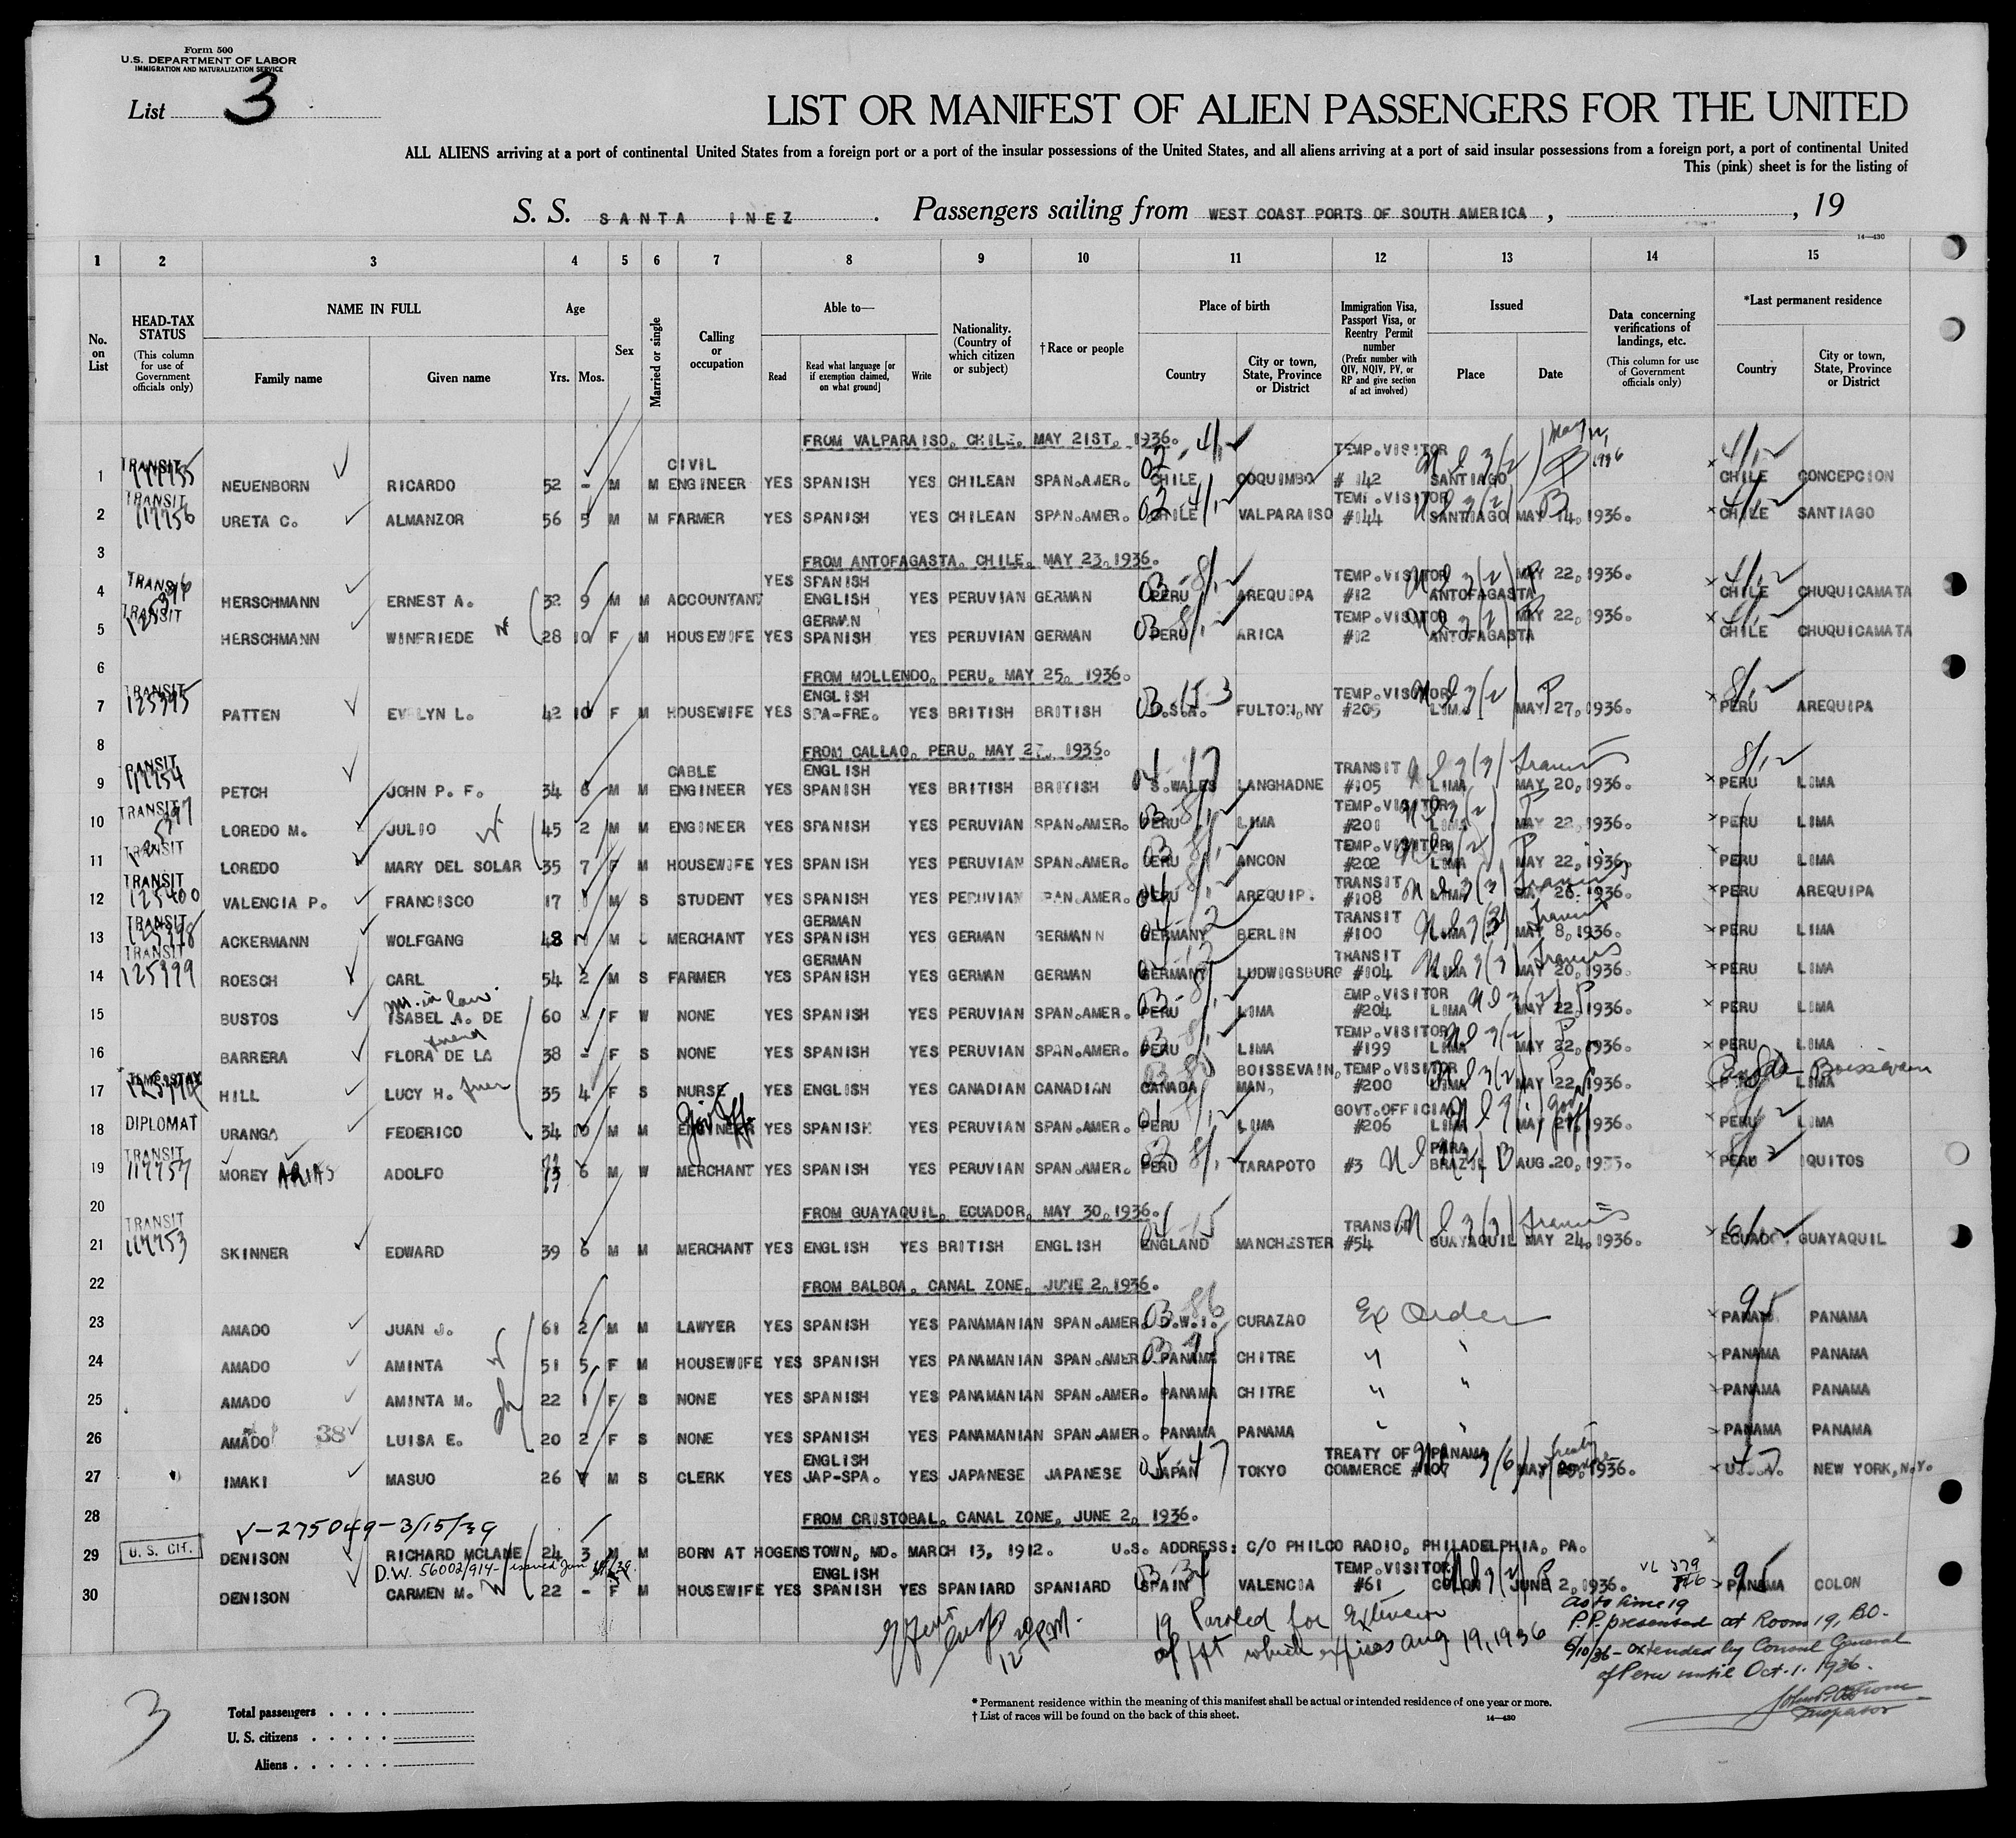 Form 500
U.S. DEPARTMENT OF LABOR
IMMIGRATION AND NATURALIZATION SERVICE
List 3
LIST OR MANIFEST OF ALIEN PASSENGERS FOR THE UNITED
ALL ALIENS arriving at a port of continental United States from a foreign port or a port of the insular possessions of the United States, and all aliens arriving at a port of said insular possessions from a foreign port, a port of continental United
This (pink) sheet is for the listing of
S. S. SANTA INEZ . Passengers sailing from WEST COAST PORTS OF SOUTH AMERICA , , 19
14—430
1 2 3 4 5 6 7 8 9 10 11 12 13 14 15
No. on List
HEAD-TAX STATUS (This column for use of Government officials only)
NAME IN FULL
Family name Given name
Age
Yrs. Mos.
Sex
Married or single
Calling or occupation
Able to—
Read Read what language [or if exemption claimed, on what ground] Write
Nationality. (Country of which citizen or subject)
†Race or people
Place of birth
Country City or town, State, Province or District
Immigration Visa, Passport Visa, or Reentry Permit number (Prefix number with QIV, NQIV, PV, or RP and give section of act involved)
Issued
Place Date
Data concerning verifications of landings, etc. (This column for use of Government officials only)
*Last permanent residence
Country City or town, State, Province or District
FROM VALPARAISO, CHILE, MAY 21ST, 1936.
1 TRANSIT NEUENBORN RICARDO 52 - M M CIVIL ENGINEER YES SPANISH YES CHILEAN SPAN.AMER. CHILE COQUIMBO TEMP.VISITOR # 142 SANTIAGO May 1936 CHILE CONCEPCION
2 TRANSIT 117756 URETA C. ALMANZOR 56 5 M M FARMER YES SPANISH YES CHILEAN SPAN.AMER. CHILE VALPARAISO TEMP.VISITOR #144 SANTIAGO MAY 14, 1936. CHILE SANTIAGO
3 FROM ANTOFAGASTA, CHILE, MAY 23, 1936.
4 TRANSIT HERSCHMANN ERNEST A. 32 9 M M ACCOUNTANT YES SPANISH ENGLISH YES PERUVIAN GERMAN PERU AREQUIPA TEMP.VISITOR #12 ANTOFAGASTA MAY 22, 1936. CHILE CHUQUICAMATA
5 TRANSIT HERSCHMANN WINFRIEDE 28 10 F M HOUSEWIFE YES GERMAN SPANISH YES PERUVIAN GERMAN PERU ARICA TEMP.VISITOR #12 ANTOFAGASTA MAY 22, 1936. CHILE CHUQUICAMATA
6 FROM MOLLENDO, PERU, MAY 25, 1936.
7 TRANSIT 125395 PATTEN EVELYN L. 42 10 F M HOUSEWIFE YES ENGLISH SPA-FRE. YES BRITISH BRITISH U.S.A. FULTON, NY TEMP.VISITOR #205 LIMA MAY 27, 1936. PERU AREQUIPA
8 FROM CALLAO, PERU, MAY 27, 1936.
9 TRANSIT 117754 PETCH JOHN P. F. 34 6 M M CABLE ENGINEER YES ENGLISH SPANISH YES BRITISH BRITISH S.WALES LANGHADNE TRANSIT #105 LIMA MAY 20, 1936. PERU LIMA
10 TRANSIT LOREDO M. JULIO 45 2 M M ENGINEER YES SPANISH YES PERUVIAN SPAN.AMER. PERU LIMA TEMP.VISITOR #201 LIMA MAY 22, 1936. PERU LIMA
11 TRANSIT LOREDO MARY DEL SOLAR 35 7 F M HOUSEWIFE YES SPANISH YES PERUVIAN SPAN.AMER. PERU ANCON TEMP.VISITOR #202 LIMA MAY 22, 1936. PERU LIMA
12 TRANSIT 125400 VALENCIA P. FRANCISCO 17 M S STUDENT YES SPANISH YES PERUVIAN SPAN.AMER. PERU AREQUIP. TRANSIT #108 LIMA MAY 26, 1936. PERU AREQUIPA
13 TRANSIT 125398 ACKERMANN WOLFGANG 48 M MERCHANT YES GERMAN SPANISH YES GERMAN GERMANN GERMANY BERLIN TRANSIT #100 LIMA MAY 8, 1936. PERU LIMA
14 TRANSIT 125399 ROESCH CARL 54 2 M S FARMER YES GERMAN SPANISH YES GERMAN GERMAN GERMANY LUDWIGSBURG TRANSIT #104 LIMA MAY 20, 1936. PERU LIMA
15 BUSTOS ISABEL A. DE 60 F W NONE YES SPANISH YES PERUVIAN SPAN.AMER. PERU LIMA TEMP.VISITOR #204 LIMA MAY 22, 1936. PERU LIMA
16 BARRERA FLORA DE LA friend 38 - F S NONE YES SPANISH YES PERUVIAN SPAN.AMER. PERU LIMA TEMP.VISITOR #199 LIMA MAY 22, 1936. PERU LIMA
17 HILL LUCY H. 35 4 F S NURSE YES ENGLISH YES CANADIAN CANADIAN CANADA BOISSEVAIN, MAN, TEMP.VISITOR #200 LIMA MAY 22, 1936. Canada Boissevain LIMA
18 DIPLOMAT URANGA FEDERICO 34 10 M M ENGINEER Gov. Off. YES SPANISH YES PERUVIAN SPAN.AMER. PERU LIMA GOVT.OFFICIAL #206 LIMA MAY 27, 1936. PERU LIMA
19 TRANSIT 117757 MOREY ARIAS ADOLFO 73 6 M W MERCHANT YES SPANISH YES PERUVIAN SPAN.AMER. PERU TARAPOTO #3 PARA, BRAZIL AUG. 20, 1935. PERU IQUITOS
20 FROM GUAYAQUIL, ECUADOR, MAY 30, 1936.
21 TRANSIT 117753 SKINNER EDWARD 39 6 M M MERCHANT YES ENGLISH YES BRITISH ENGLISH ENGLAND MANCHESTER TRANSIT #54 GUAYAQUIL MAY 24, 1936. ECUADOR GUAYAQUIL
22 FROM BALBOA, CANAL ZONE, JUNE 2, 1936.
23 AMADO JUAN J. 61 2 M M LAWYER YES SPANISH YES PANAMANIAN SPAN.AMER. D.W.I. CURAZAO Ex Order PANAMA PANAMA
24 AMADO AMINTA 51 5 F M HOUSEWIFE YES SPANISH YES PANAMANIAN SPAN.AMER. PANAMA CHITRE " " PANAMA PANAMA
25 AMADO AMINTA M. 22 1 F S NONE YES SPANISH YES PANAMANIAN SPAN.AMER. PANAMA CHITRE " " PANAMA PANAMA
26 AMADO 38 LUISA E. 20 2 F S NONE YES SPANISH YES PANAMANIAN SPAN.AMER. PANAMA PANAMA " " PANAMA PANAMA
27 IMAKI MASUO 26 M S CLERK YES ENGLISH JAP-SPA. YES JAPANESE JAPANESE JAPAN TOKYO TREATY OF COMMERCE #107 PANAMA MAY 20, 1936. U.S.A. NEW YORK, N.Y.
28 FROM CRISTOBAL, CANAL ZONE, JUNE 2, 1936.
V-275049-3/15/39
29 U. S. CIT. DENISON RICHARD MCLANE 24 3 M M BORN AT HOGENSTOWN, MD. MARCH 13, 1912. U.S. ADDRESS: C/O PHILCO RADIO, PHILADELPHIA, PA.
D.W. 56002/914- issued Jan
30 DENISON CARMEN M. W 22 - F M HOUSEWIFE YES ENGLISH SPANISH YES SPANIARD SPANIARD SPAIN VALENCIA TEMP.VISITOR #61 COLON JUNE 2, 1936. PANAMA COLON
19 Paroled for Extension
of ppt which expires Aug 19, 1936
as to line 19
P.P. presented at Room 19, B.O.
6/10/36 - extended by Consul General
of Peru until Oct. 1. 1936.
Inspector
3
Total passengers . . . .
U. S. citizens . . . . .
Aliens . . . . . .
* Permanent residence within the meaning of this manifest shall be actual or intended residence of one year or more.
† List of races will be found on the back of this sheet.
14—430